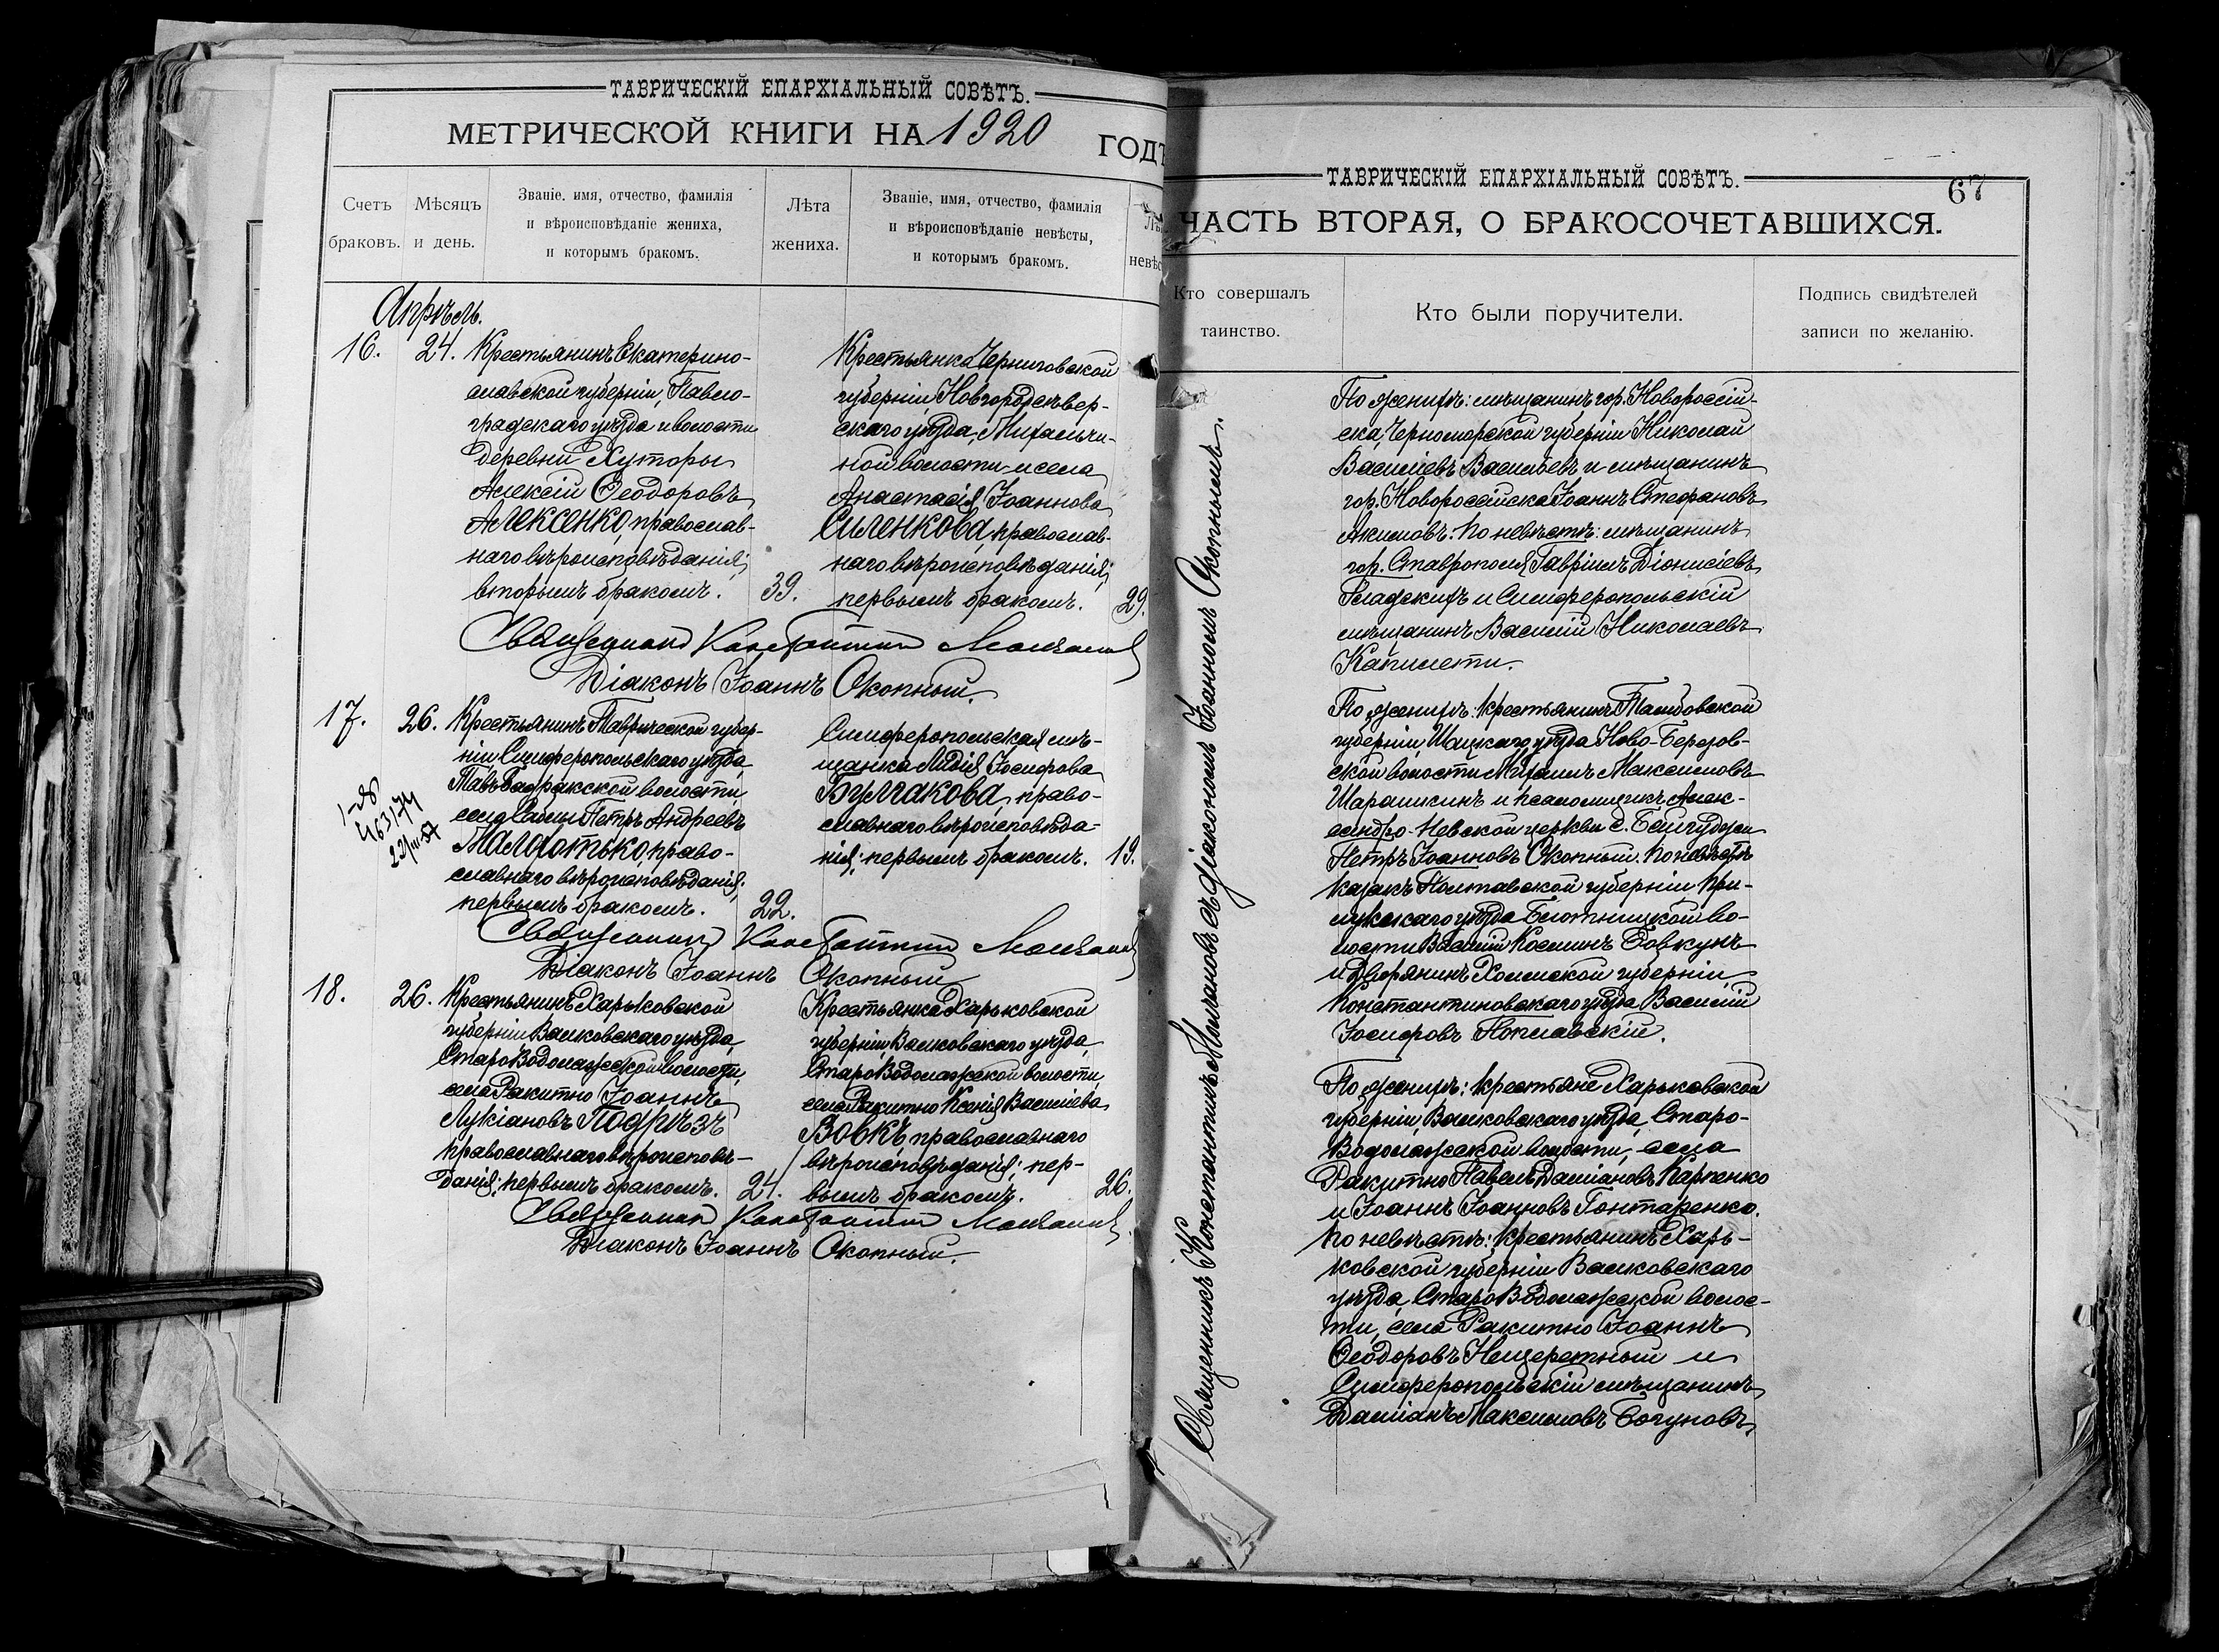 ТАВРИЧЕСКІЙ ЕПАРХІАЛЬНЫЙ СОВѢТЪ.
МЕТРИЧЕСКОЙ КНИГИ НА 1920 ГОДЪ
Счетъ браковъ.
Мѣсяцъ и день.
Званіе, имя, отчество, фамилія
и вѣроисповѣданіе жениха,
и которымъ бракомъ.
Лѣта
жениха.
Званіе, имя, отчество, фамилія
и вѣроисповѣданіе невѣсты,
и которымъ бракомъ.
Апрѣль.
16. 24.
Крестьянинъ Екатерино-
славской губерніи, Павло-
градскаго уѣзда и волости
деревни Хуторы
Алексій Ѳеодоровъ
Алексенко, православ-
наго вѣроисповѣданія;
вторымъ бракомъ.
39.
Крестьянка Черниговской
губерніи, Новгородсѣвер-
скаго уѣзда, Михальчи-
ной волости и села
Анастасія Іоаннова
Силенкова, православ-
наго вѣроисповѣданія;
первымъ бракомъ.
29.
Священникъ Константинъ Молчановъ
Діаконъ Іоаннъ Окопный.
17. 26.
Крестьянинъ Таврической губер-
ніи Симферопольскаго уѣзда,
волости,
села Саблы Петръ Андреевъ
право-
славнаго вѣроисповѣданія;
первымъ бракомъ.
22.
Симферопольская мѣ-
щанка Лидія Іосифова
Булгакова, право-
славнаго вѣроисповѣда-
нія; первымъ бракомъ.
19.
Священникъ Константинъ Молчановъ
Діаконъ Іоаннъ Окопный
18. 26.
Крестьянинъ Харьковской
губерніи Валковскаго уѣзда,
СтароВодолажской волости,
села Ракитно Іоаннъ
Лукіановъ Подрѣзъ
православнаго вѣроисповѣ-
данія; первымъ бракомъ.
24.
Крестьянка Харьковской
губерніи, Валковскаго уѣзда,
СтароВодолажской волости,
села Ракитно Ксенія Василіева
Вовкъ, православнаго
вѣроисповѣданія; пер-
вымъ бракомъ.
26.
Священникъ Константинъ Молчановъ
Діаконъ Іоаннъ Окопный.
67
ТАВРИЧЕСКІЙ ЕПАРХІАЛЬНЫЙ СОВѢТЪ.
ЧАСТЬ ВТОРАЯ, О БРАКОСОЧЕТАВШИХСЯ.
Кто совершалъ
таинство.
Кто были поручители.
Подпись свидѣтелей
записи по желанію.
Священникъ Константинъ Молчановъ съ діакономъ Іоанномъ Окопнымъ.
По женихѣ: мѣщанинъ гор. Новороссій-
ска, Черноморской губерніи Николай
Василіевъ Васильевъ и мѣщанинъ
гор. Новороссійска Іоаннъ Стефановъ
Акимовъ. По невѣстѣ: мѣщанинъ
гор. Ставрополя Гавріилъ Діонисіевъ
Гладскихъ и Симферопольскій
мѣщанинъ Василій Николаевъ
По женихѣ: крестьянинъ Тамбовской
губерніи, Шацкаго уѣзда Ново-Березов-
ской волости Михаилъ Максимовъ
Шарашкинъ и псаломщикъ Алек-
сандро-Невской церкви с.
Петръ Іоанновъ Окопный. По невѣстѣ
казакъ Полтавской губерніи При-
лукскаго уѣзда во-
лости Василій Косминъ Бовкунъ
и дворянинъ Холмской губерніи,
Константиновскаго уѣзда Василій
Іосифовъ Поплавскій.
По женихѣ: крестьяне Харьковской
губерніи, Валковскаго уѣзда, Старо-
Водолажской волости, села
Ракитно Павелъ Даміановъ Карпенко
и Іоаннъ Іоанновъ Гонтаренко.
По невѣстѣ: крестьянинъ Харь-
ковской губерніи Валковскаго
уѣзда, СтароВодолажской волос-
ти, села Ракитно Іоаннъ
Ѳеодоровъ Нещеретный и
Симферопольскій мѣщанинъ
Даміанъ Максимовъ Богуновъ